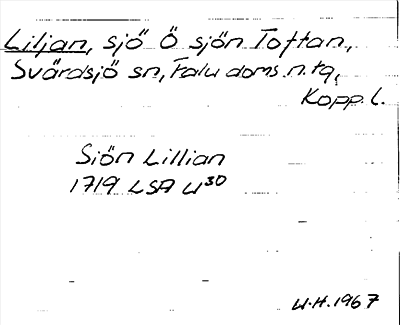 Liljan, sjö Ö sjön Toftan,
Svärdsjö sn, Falu doms.n.tg,
Kopp. l.
Sjön Lillian
1719 LSA U30
U.H. 1967